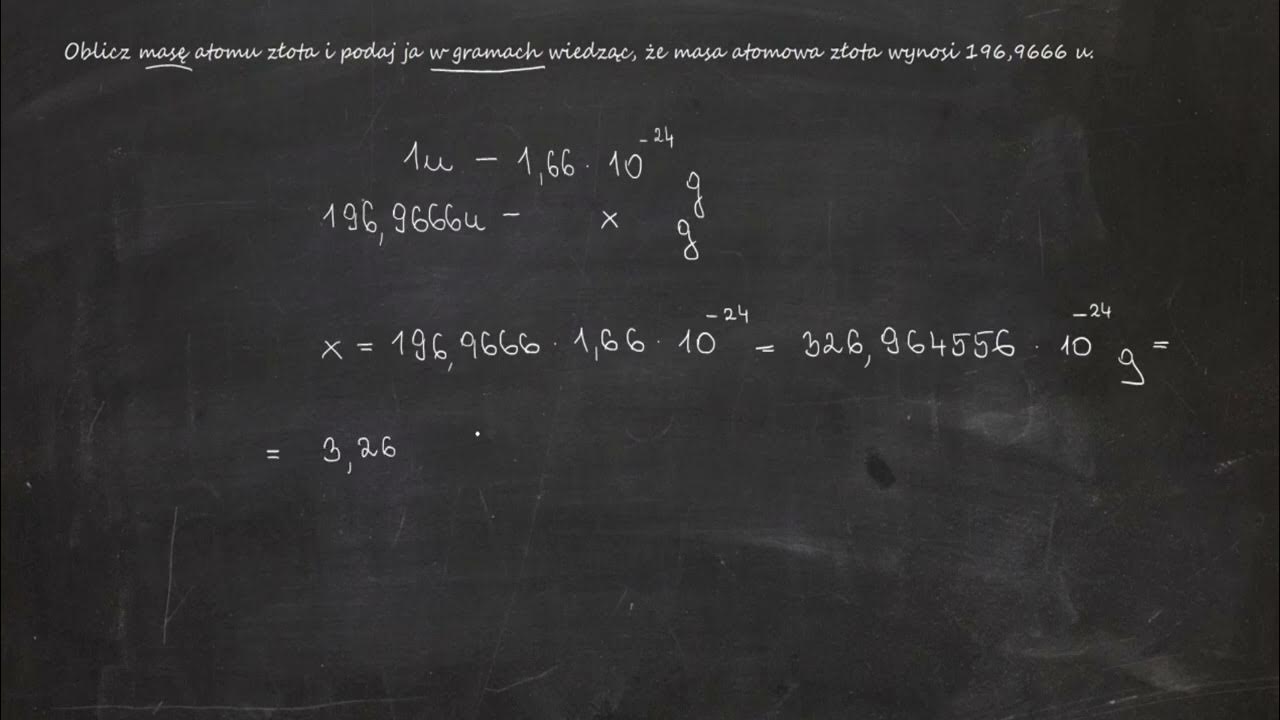 Oblicz masę atomu złota i podaj ja w gramach wiedząc, że masa atomowa złota wynosi 196,9666 u.
1u – 1,66 · 10⁻²⁴ g
196,9666u – x g
x = 196,9666 · 1,66 · 10⁻²⁴ = 326,964556 · 10⁻²⁴ g =
= 3,26 ·